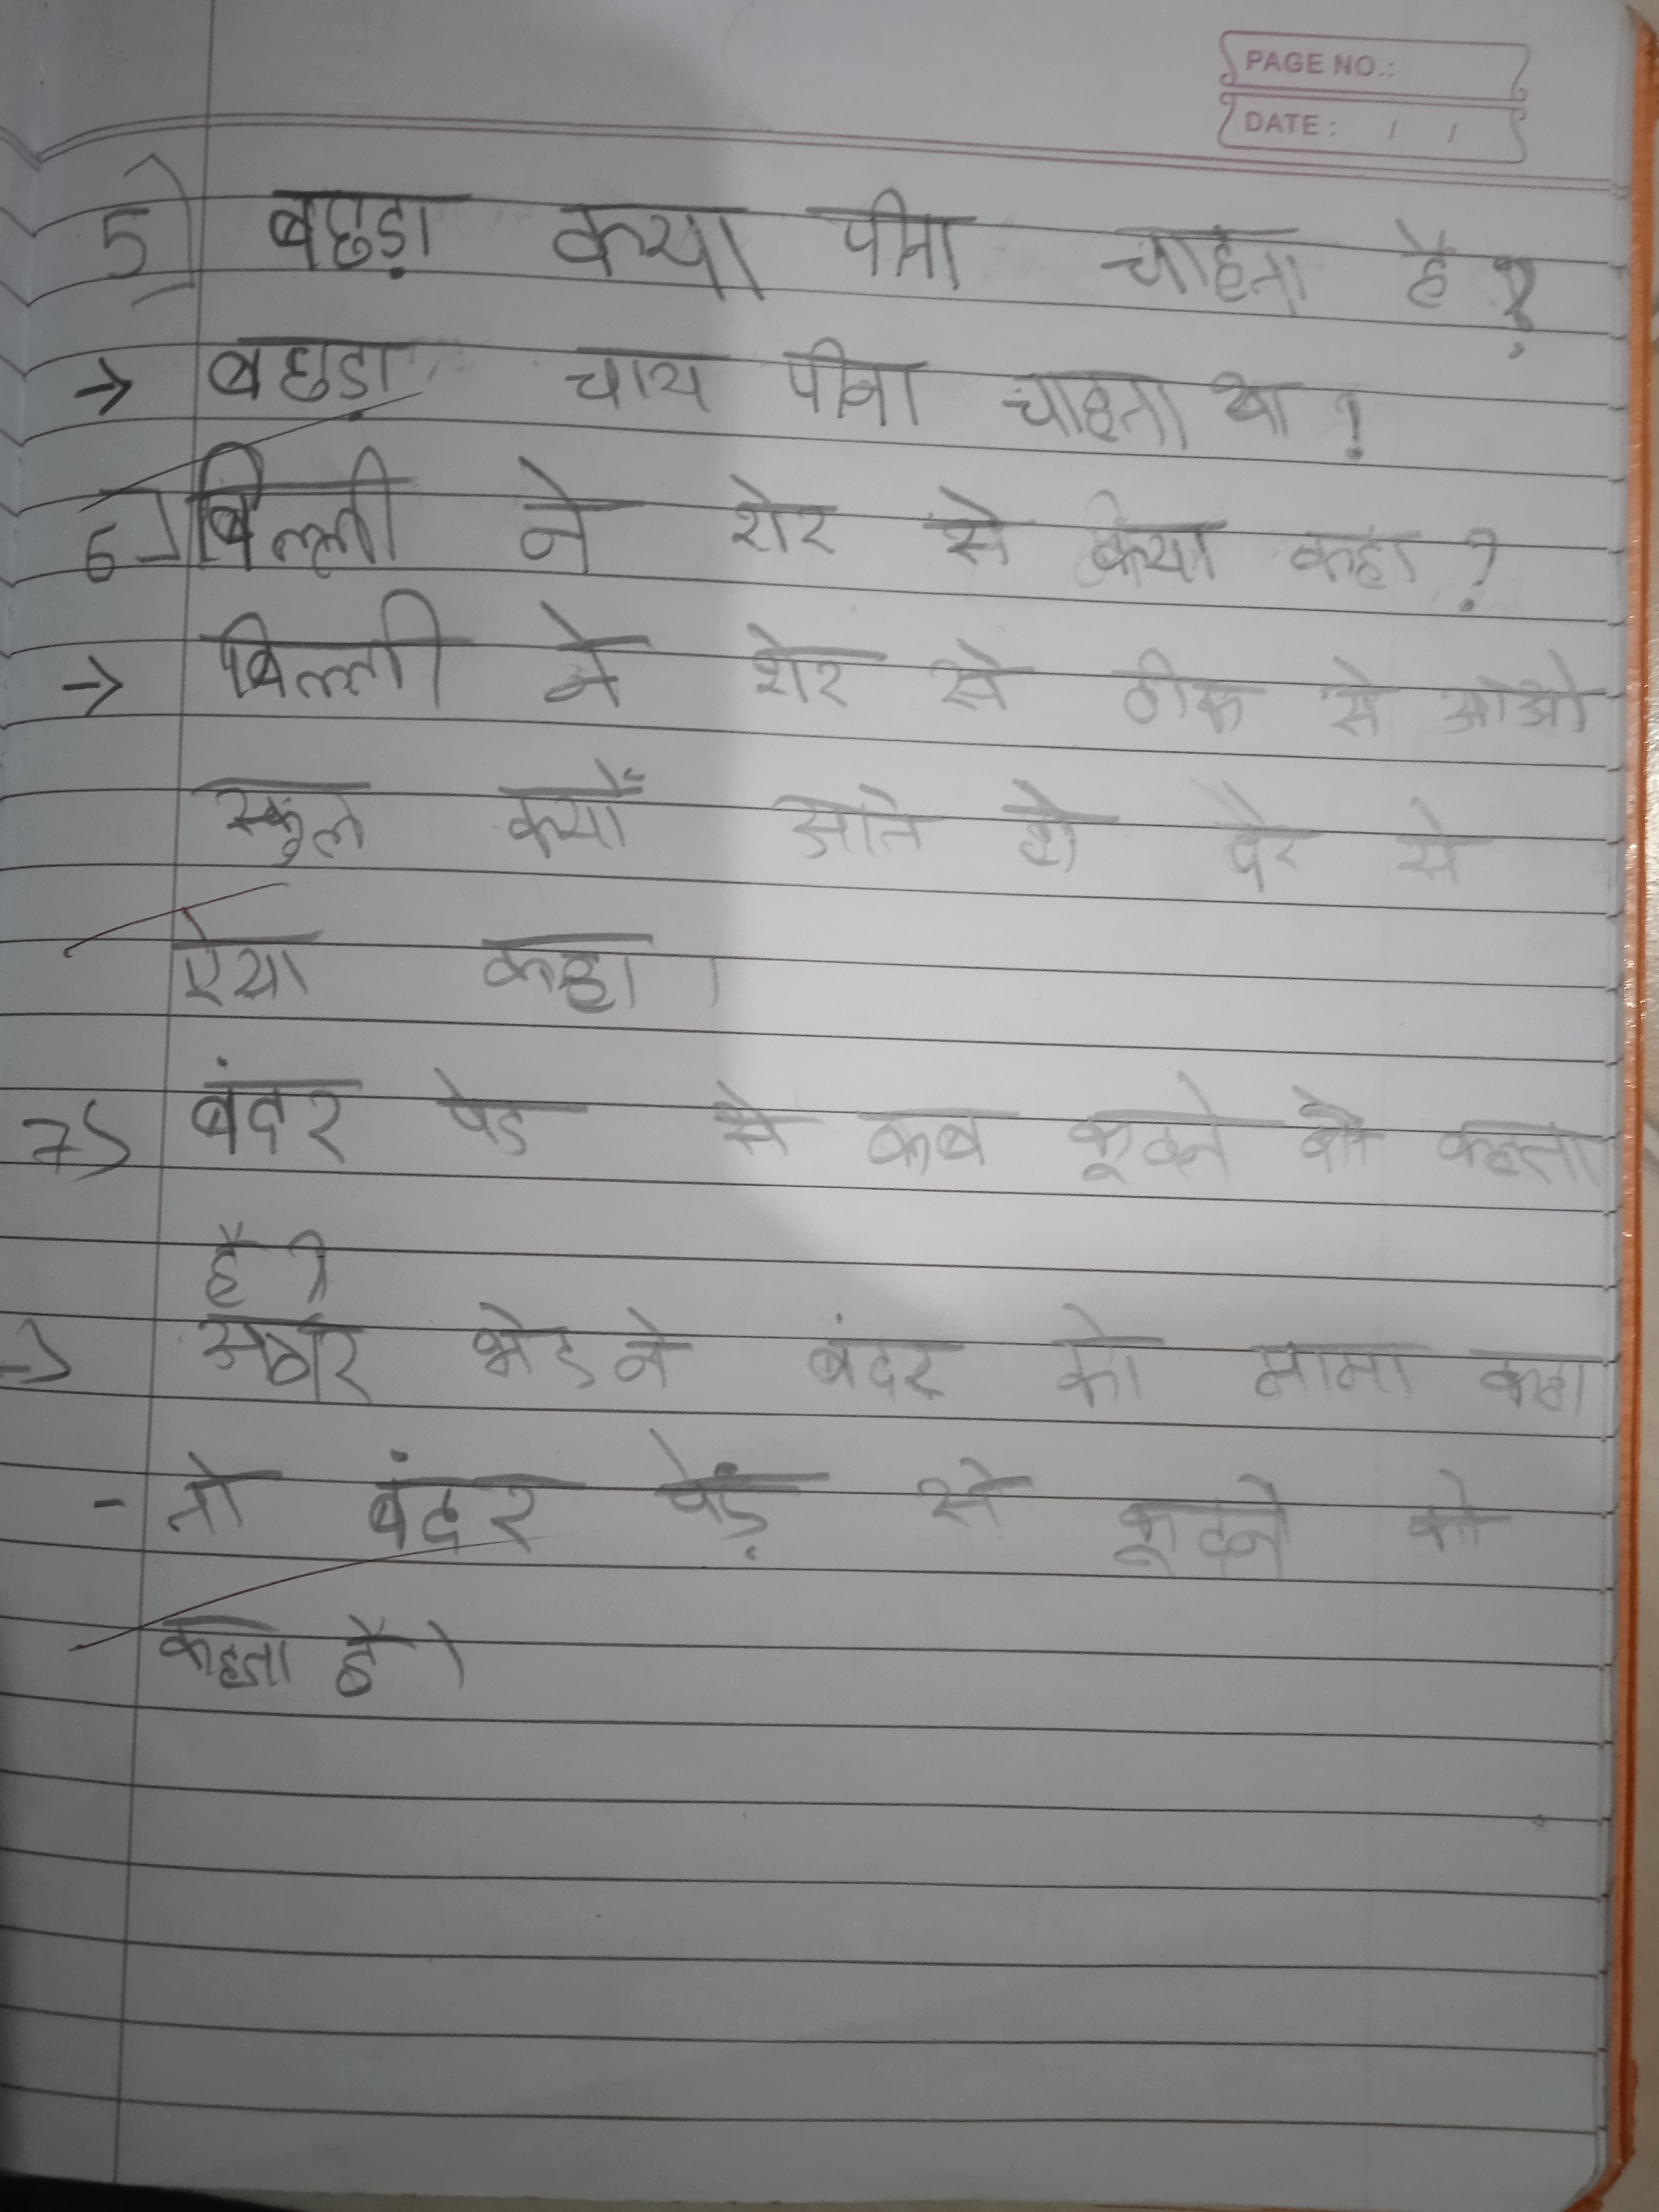 PAGE NO.:
DATE: / /
5) बछड़ा क्या पीना चाहता है ?
→ बछडा चाय पीना चाहता था !
6) बिल्ली ने शेर से क्या कहा ?
→ बिल्ली ने शेर से ठीक से ओओ
स्कूल क्यों आते हो देर से
ऐसा कहा ।
7) बंदर पेड से कब कूदने को कहता
है ।
→ अगर भेडने बंदर को मामा कहा
- तो बंदर पेड़ से कूदने को
कहता है ।